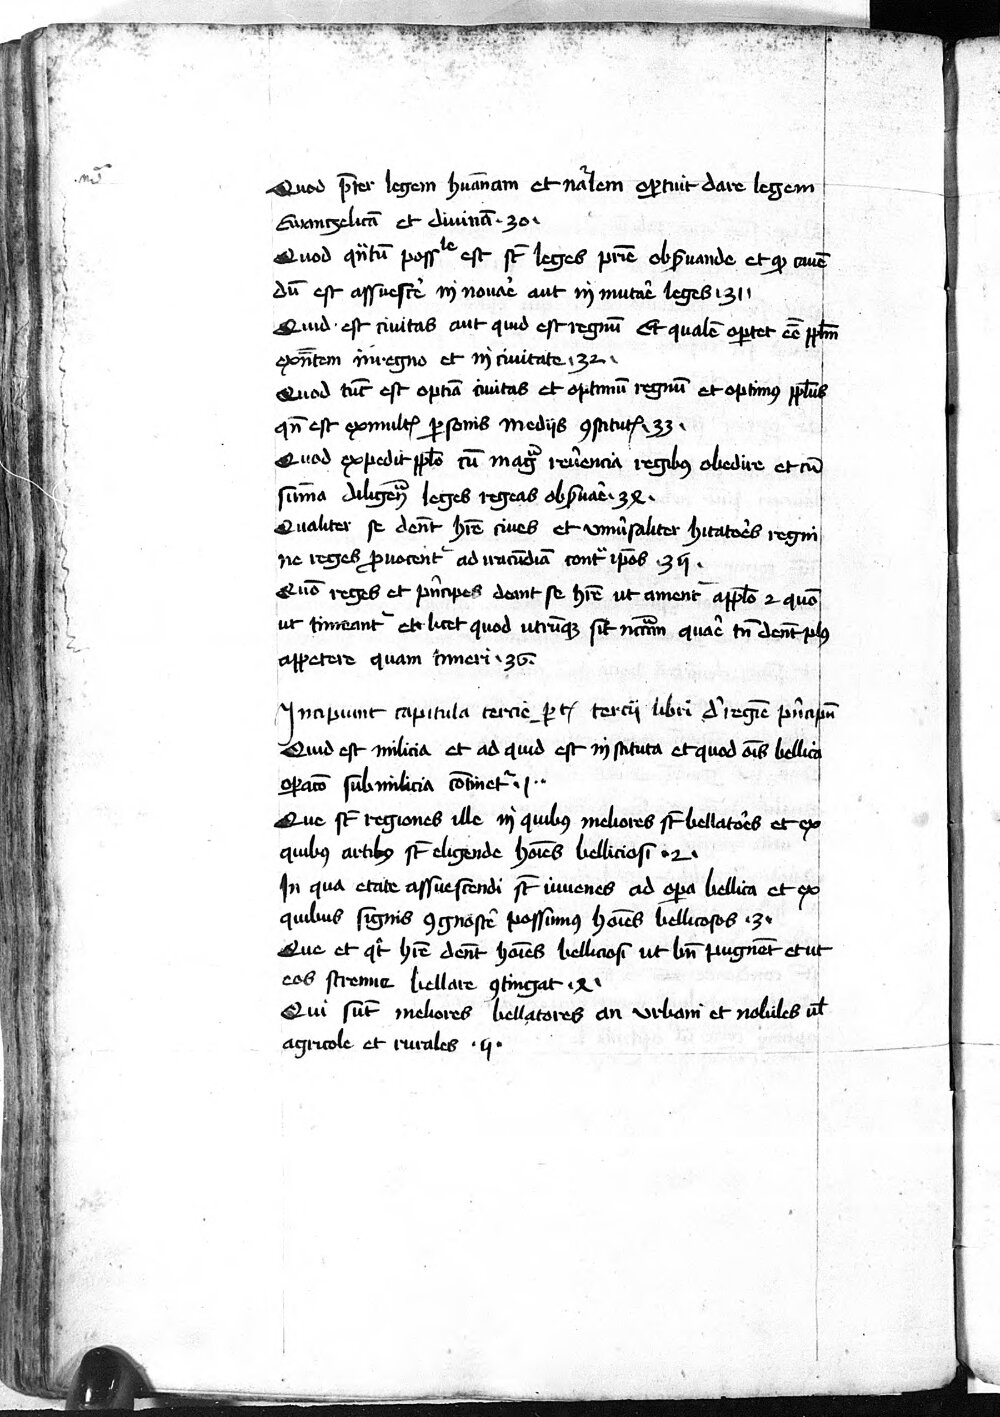 Quod p̄ter legem hūanam et nãlem oꝑtuit dare legem
Euangelicā et diuinā ·30·
Quod qn̄tū possˡᵉ est st̄ leges pr̄ie obẜuande et qꝫ cauē
dū est assuescẽ in nouãe aut inmutaẽ leges ·31·
Quid est ciuitas aut quid est regnū Et qualē oꝑtet eē ppl̄m
existn̄tem in regno et in ciuitate ·32·
Quod tūc est optīa ciuitas et optimū regnū et optimꝰ ppl̄us
qn̄ est ex multꝭ ꝑsonis mediis ꝯstitutꝭ ·33·
Quod expedit pplō cū magᵃ reuẽencia regibꝰ obedire et cū
summa diligenᵃ leges regeas obẜuaẽ ·34·
Qualiter se dent̄ hr̄e ciues et vniũsaliter hītatoẽs regni
ne reges ꝓuocentʳ ad iracūdiā contᵃ ip̄os ·35·
Quō reges et pñcipes deant se hr̄e ut amentʳ a pplō 2 quō
ut timeantʳ et licet quod utrūqꝫ sit nc̄ᵃm quaẽ tn̄ dent̄ plꝰ
appetere quam timeri ·36·
Incipiunt capitula tercie ꝑtꝭ tercii libri d̃ regīe pñcipū
Quid est milicia et ad quid est instituta et quod oīs bellica
oꝑacō sub milicia cōtinetʳ ·1··
Que st̄ regiones ille in quibꝰ meliores st̄ bellatoẽs et ex
quibꝰ artibꝰ st̄ eligende hoīes belliciosi ·2·
In qua etate assuescendi st̄ iuuenes ad oꝑa bellica et ex
quibus signis ꝯgnoscẽ possimꝰ hoīes bellicosos ·3·
Que et qt̃ hr̄e dent̄ hoīes belliciosi ut bn̄ pugnēt et ut
eos strenue bellare ꝯtingat ·4·
Qui sūt meliores bellatores an vrbani et nobiles ul̄
agricole et rurales ·5·